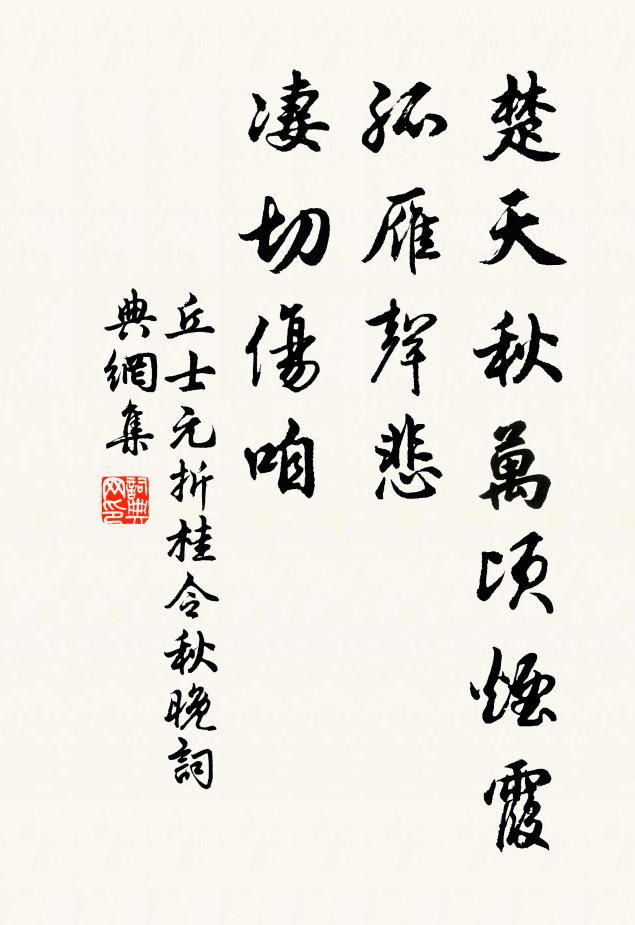 楚天秋萬頃煙霞
孤雁聲悲
凄切傷咱
丘士元折桂令秋晚詞
典網集
詞典网印